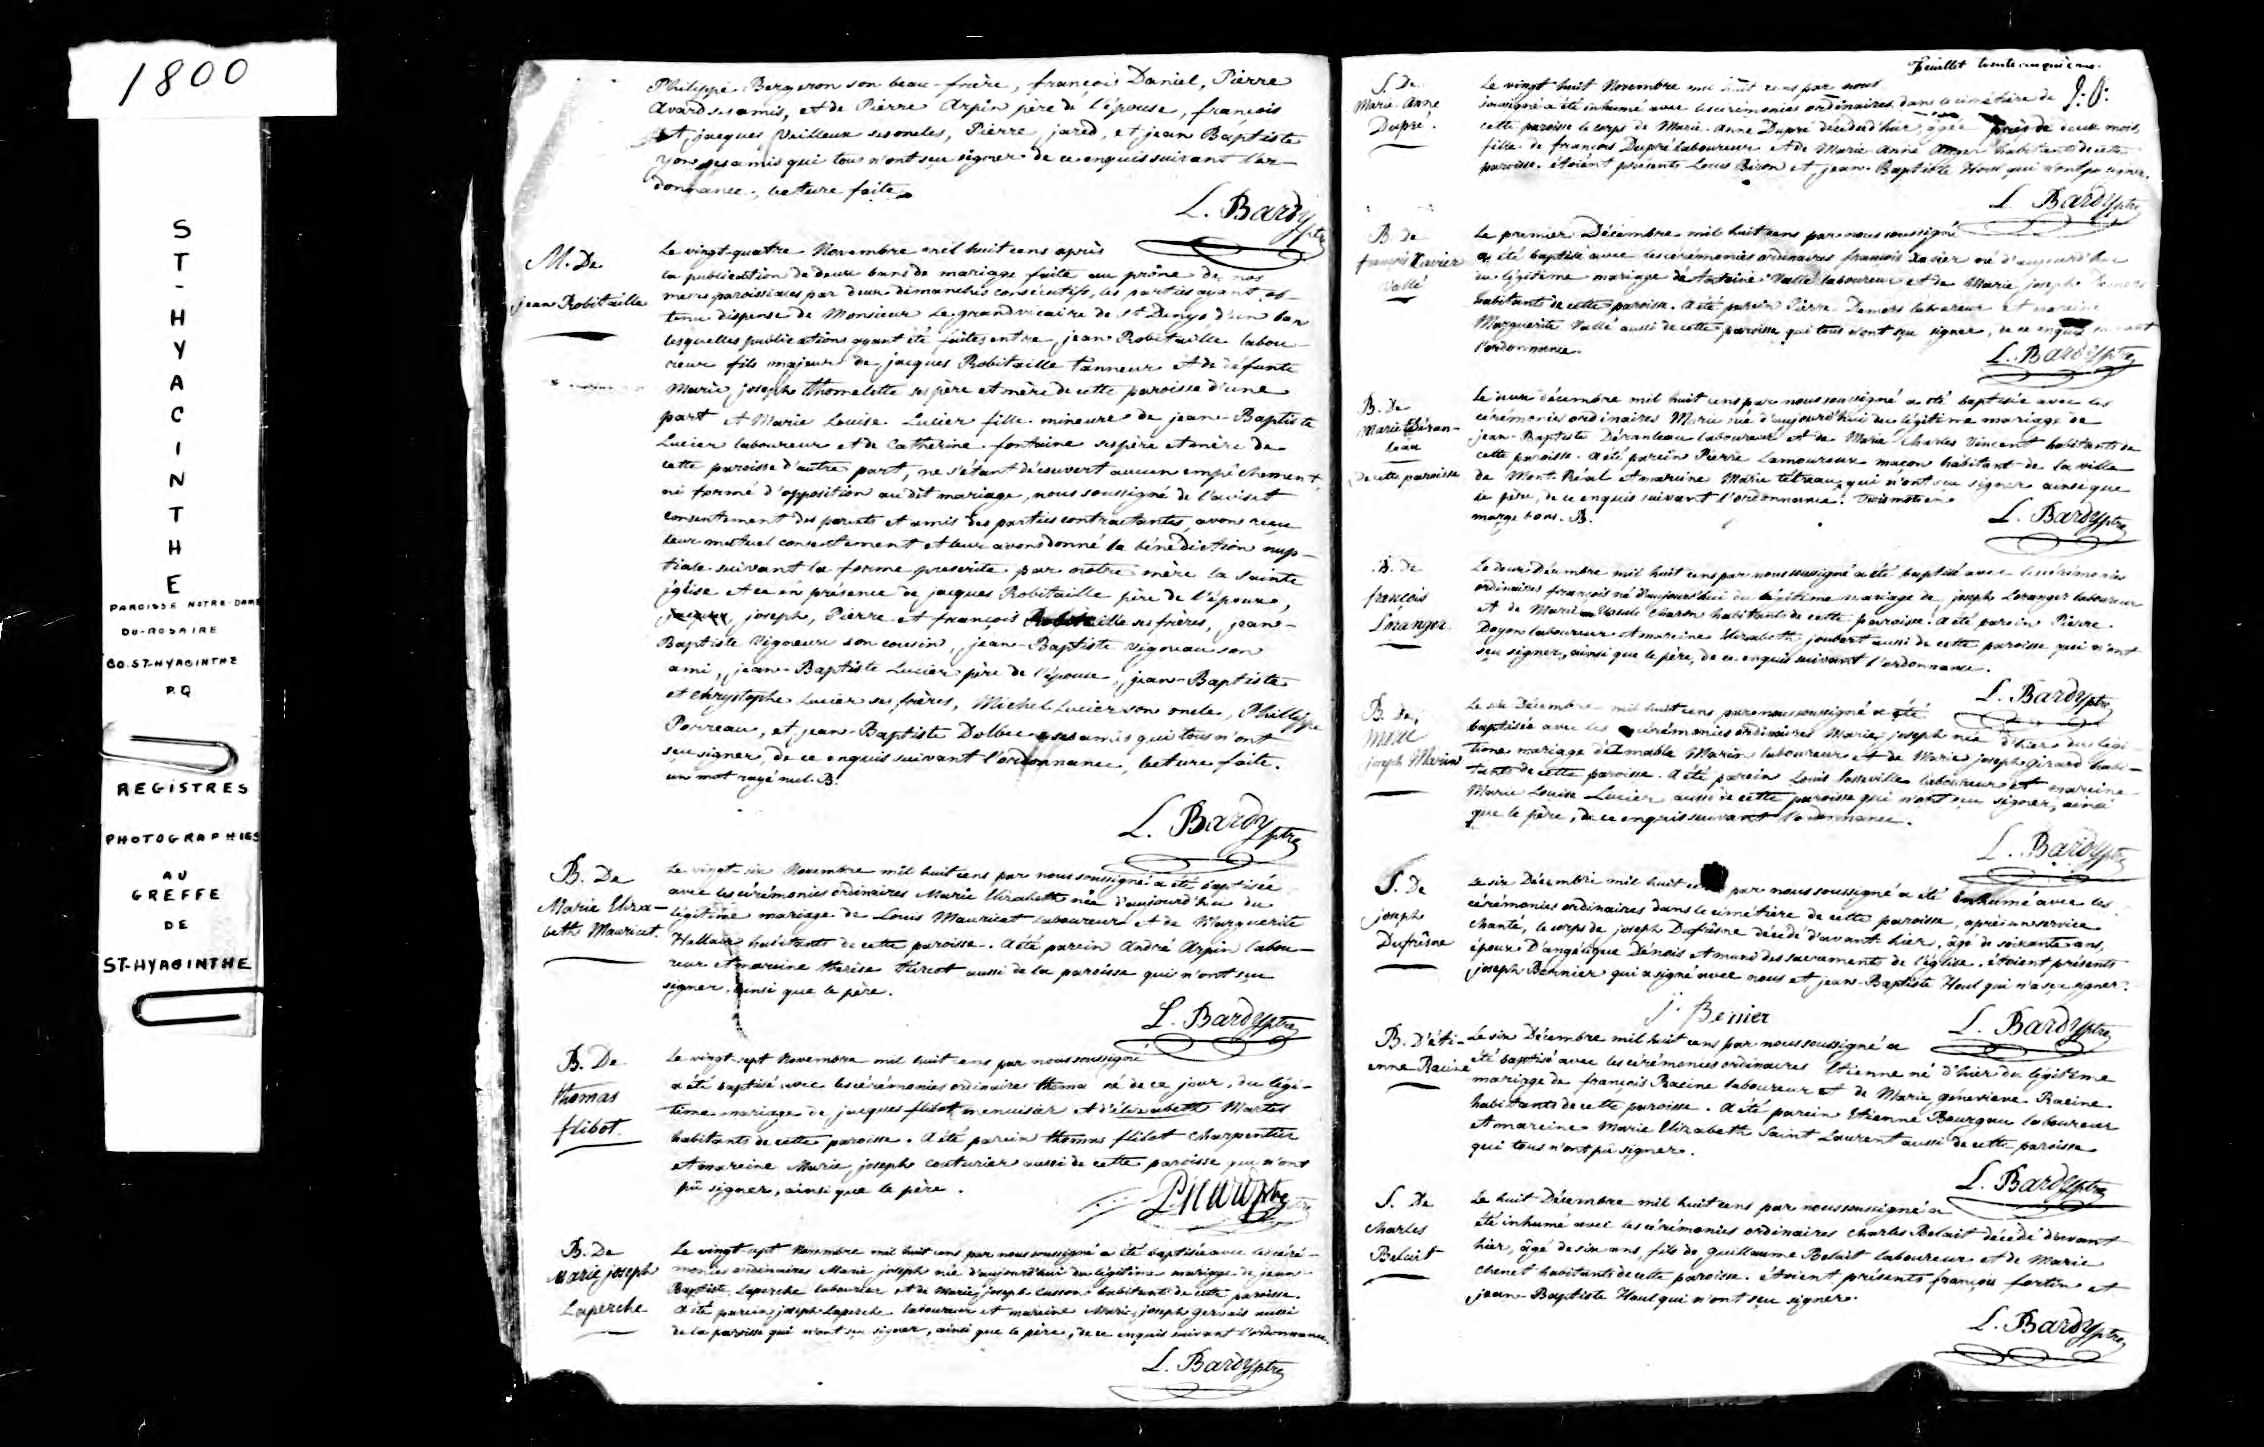 1800
ST-HYACINTHE
PAROISSE NOTRE-DAME
DU-ROSAIRE
CO. ST-HYACINTHE
P.Q
REGISTRES
PHOTOGRAPHIES
AU
GREFFE
DE
ST-HYACINTHE
Philippe Bergeron son beau-frère, françois Daniel, Pierre
Avard ses amis, et de Pierre Arpin père de l'épouse, françois
et jacques Veilleux ses oncles, Pierre jared, et jean Baptiste
yon ses amis qui tous n'ont sçu signer de ce enquis suivant l'or-
donnance, lecture faite.
L. Bardy ptre
M. De
jean Robitaille
Le vingt-quatre Novembre mil huit cens après
la publication de deux bans de mariage faite au prône de nos
messes paroissiales par deux dimanches consécutifs, les parties ayant ob-
tenu dispense de Monsieur Le grand vicaire de St Denys d'un ban
lesquelles publications ayant été faites entre jean Robitaille labou-
reur fils majeur de jacques Robitaille tanneur et de défunte
Marie joseph thomelette ses père et mère de cette paroisse d'une
part et Marie Louise Lucier fille mineure de jean-Baptiste
Lucier laboureur et de Catherine fontaine ses père et mère de
cette paroisse d'autre part, ne s'étant découvert aucun empêchement,
ni formé d'opposition au dit mariage, nous soussigné de l'avis et
consentement des parents et amis des parties contractantes, avons reçu
leur mutuel consentement et leur avons donné la bénédiction nup-
tiale suivant la forme prescrite par notre mère la sainte
église et ce en présence de jacques Robitaille père de l'époux,
joseph, Pierre et françois Robitaille ses frères, jean-
Baptiste Vigneux son cousin, jean-Baptiste vigneau son
ami, jean-Baptiste Lucier père de l'épouse, jean-Baptiste
et Chrystophe Lucier ses frères, Michel Lucier son oncle, Phillippe
Porreau, et jean-Baptiste Dolbec ses amis qui tous n'ont
sçu signer, de ce enquis suivant l'ordonnance, lecture faite.
un mot rayé nul. B.
L. Bardy ptre
B. De
Marie Eliza-
beth Mauricet.
Le vingt-six Novembre mil huit cens par nous soussigné a été baptisée
avec les cérémonies ordinaires Marie Elizabeth née d'aujourd'hui du
légitime mariage de Louis Mauricet laboureur et de Marguerite
habitants de cette paroisse. A été parein André Arpin labou-
reur et mareine therèse aussi de la paroisse qui n'ont sçu
signer, ainsi que le père.
L. Bardy ptre
B. De
thomas
flibot.
Le vingt-sept Novembre mil huit cens par nous soussigné
a été baptisé avec les cérémonies ordinaires thomas né de ce jour, du légi-
time mariage de jacques flibot menuisier et d'élizabeth Martes
habitants de cette paroisse. A été parein thomas flibot charpentier
et mareine Marie joseph couturier aussi de cette paroisse qui n'ont
pû signer, ainsi que le père.
Picard ptre
B. De
Marie joseph
Laperche
Le vingt-sept Novembre mil huit cens par nous soussigné a été baptisée avec les céré-
monies ordinaires Marie joseph née d'aujourd'hui du légitime mariage de jean
Baptiste Laperche laboureur et de Marie joseph Cusson habitants de cette paroisse.
A été parein joseph Laperche laboureur et mareine Marie joseph gervais aussi
de la paroisse qui n'ont sçu signer, ainsi que le père, de ce enquis suivant l'ordonnance.
L. Bardy ptre
Feuillet trente cinquieme.
S. De
Marie Anne
Dupré.
Le vingt huit Novembre mil huit cens par nous
soussigné a été inhumé avec les cérémonies ordinaires dans le cimétière de
cette paroisse le corps de Marie-Anne Dupré décédée d'hier, âgée près de deux mois,
fille de françois Dupré laboureur et de Marie Anne habitants de cette
paroisse. étoient présents Louis Biron et jean-Baptiste Houl qui n'ont pu signer.
L. Bardy ptre
B. De
françois Xavier
Vallé
Le premier Décembre mil huit cens par nous soussigné
a été baptisé avec les cérémonies ordinaires françois Xavier né d'aujourd'hui
du légitime mariage de Antoine Vallé laboureur et de Marie joseph Demers
habitants de cette paroisse. A été parein Pierre Demers laboureur et mareine
Marguerite Vallé aussi de cette paroisse qui tous n'ont sçu signer, de ce enquis suivant
l'ordonnance.
L. Bardy ptre
B. De
Marie Déran-
leau
de cette paroisse
Le deux décembre mil huit cens par nous soussigné a été baptisée avec les
cérémonies ordinaires Marie née d'aujourd'hui du légitime mariage de
jean-Baptiste Déranleau laboureur et de Marie Charles Vincent habitants de
cette paroisse. A été parein Pierre Lamoureux maçon habitant de la ville
de Mont-Réal et mareine Marie tétreau qui n'ont sçu signer ainsi que
le père, de ce enquis suivant l'ordonnance. trois mots en
marge bons. B.
L. Bardy ptre
B. De
françois
Loranger
Le deux Décembre mil huit cens par nous soussigné a été baptisé avec les cérémonies
ordinaires françois né d'aujourd'hui du légitime mariage de joseph Loranger laboureur
et de Marie Ursule Charon habitants de cette paroisse. A été parein Pierre
Doyon laboureur et mareine Elizabeth joubert aussi de cette paroisse qui n'ont
sçu signer, ainsi que le père, de ce enquis suivant l'ordonnance.
L. Bardy ptre
B. De
Marie
joseph Marin
Le six Décembre mil huit cens par nous soussigné a été
baptisée avec les cérémonies ordinaires Marie joseph née d'hier du légi-
time mariage d'Amable Marin laboureur et de Marie joseph Girard habi-
tants de cette paroisse. A été parein Louis laboureur et mareine
Marie Louise Lucier aussi de cette paroisse qui n'ont sçu signer, ainsi
que le père, de ce enquis suivant l'ordonnance.
L. Bardy ptre
S. De
joseph
Dufrêsne
Le six Décembre mil huit cens par nous soussigné a été inhumé avec les
cérémonies ordinaires dans le cimétière de cette paroisse, après un service
chanté, le corps de joseph Dufrêsne décédé d'avant hier, âgé de soixante ans,
époux D'angélique Benois et muni des sacrements de l'église. étoient présents
joseph Bernier qui a signé avec nous et jean-Baptiste Houl qui n'a sçu signer.
J. Bernier
L. Bardy ptre
B. D'éti-
enne Racine
Le six Décembre mil huit cens par nous soussigné a
été baptisé avec les cérémonies ordinaires Etienne né d'hier du légitime
mariage de françois Racine laboureur et de Marie géneviève Racine
habitants de cette paroisse. A été parein Etienne Bourgau laboureur
et mareine Marie Elizabeth Saint Laurent aussi de cette paroisse
qui tous n'ont pû signer.
L. Bardy ptre
S. De
Charles
Belait
Le huit Décembre mil huit cens par nous soussigné a
été inhumé avec les cérémonies ordinaires Charles Belait décédé d'avant
hier, âgé de six ans, fils de guillaume Belait laboureur et de Marie
Chenet habitants de cette paroisse. étoient présents françois fortin et
jean-Baptiste Houl qui n'ont sçu signer.
L. Bardy ptre